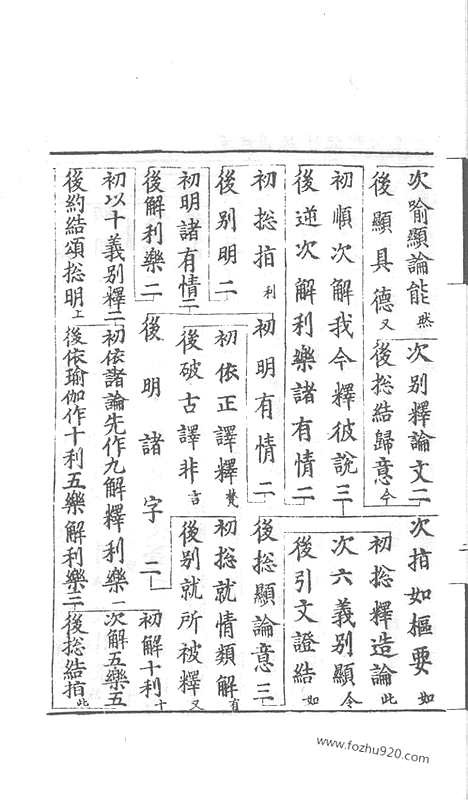 次喻顯論能 然 次別釋論文二 次指如樞要 如
後顯具德 又 後総結歸意 今 初総釋造論 此
初順次解我今釋彼說三 次六義別顯 今
後逆次解利樂諸有情二 後引文證結 如
初総指 利 初明有情二 後総顯論意三
後別明二 初依正譯釋 梵 初総就情類解 有
初明諸有情二 後破古譯非 言 後別就所被釋 又
後解利樂二 後明諸字二 初解十利 十
初以十義別釋二 初依諸論先作九解釋利樂 一 次解五樂五
後約結頌総明 上 後依瑜伽作十利五樂解利樂三 後総結指 此
www.fozhu920.com